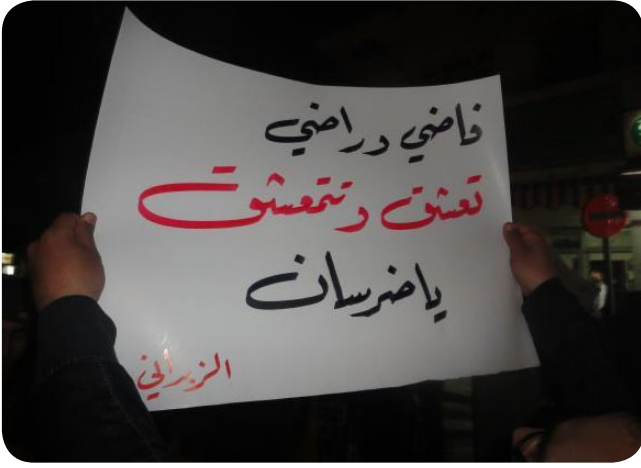 فاضي وراضي
تعشق وتتمعشق
ياضرسان
الزبداني